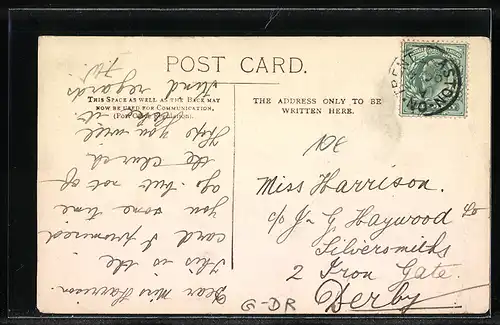 POST CARD.
THIS SPACE AS WELL AS THE BACK MAY
NOW BE USED FOR COMMUNICATION,
(Post Office Regulation).
THE ADDRESS ONLY TO BE
WRITTEN HERE.
Dear Miss Harrison.
This is the
card I promised
you some time
ago. but not of
the Church
Hope you will
like it
Kind regards
Miss Harrison.
c/o J. G. Haywood
Silversmiths
2 Iron Gate.
Derby
G-DR